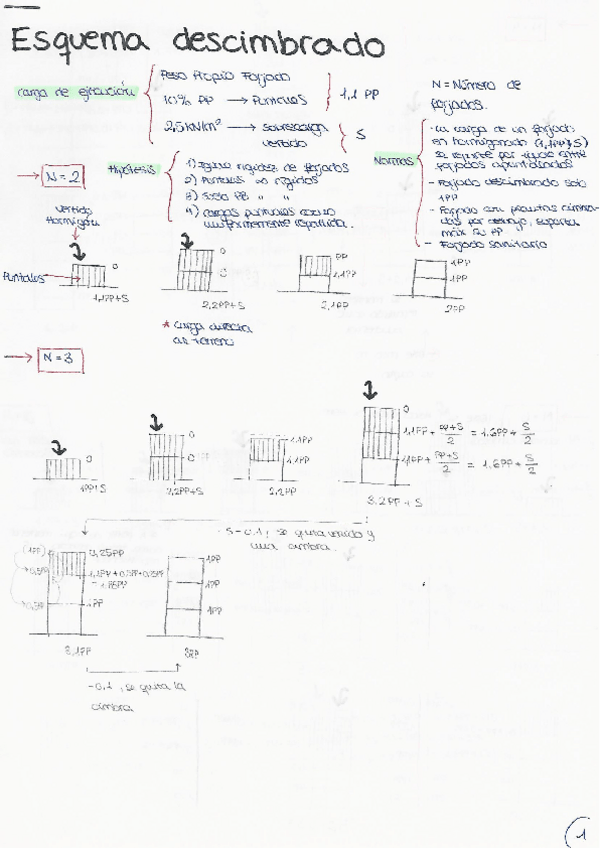 Esquema descimbrado
carga de ejecución
Peso Propio Forjado
10% PP → Puntales
1,1 PP
2,5 KN/m² → sobrecarga
vertido
S
N = Número de
forjados.
Normas
- La carga de un forjado
en hormigonado (1,1PP+S)
se reparte por igual entre
forjados apuntalados
- Forjado descimbrado solo
1PP
- Forjado sanitario
→ N=2
Hipótesis
1) Igual rigidez de forjados
2) Puntales ∞ rígidos
3) Suelo PB " "
4) cargas puntuales como
uniformemente repartida.
vertido
Hormigón
Puntales
0
1,1PP+S
0
0
2,2PP+S
PP
1,1PP
2,1PP
1PP
1PP
2PP
* carga directa
al terreno
→ N=3
0
1PP+S
0
0
2,2PP+S
1,1PP
1,1PP
2,2PP
0
1,1PP + PP+S/2 = 1.6PP + S/2
1,1PP + PP+S/2 = 1.6PP + S/2
3.2PP + S
-S-0.1, se quita vertido y
una cimbra.
(1PP)
0,25PP
+0,5PP
1,1PP+0,5PP+0,25PP
= 1.85PP
+0,5PP
1PP
3,1PP
1PP
1PP
1PP
3PP
-0.1, se quita la
cimbra
1